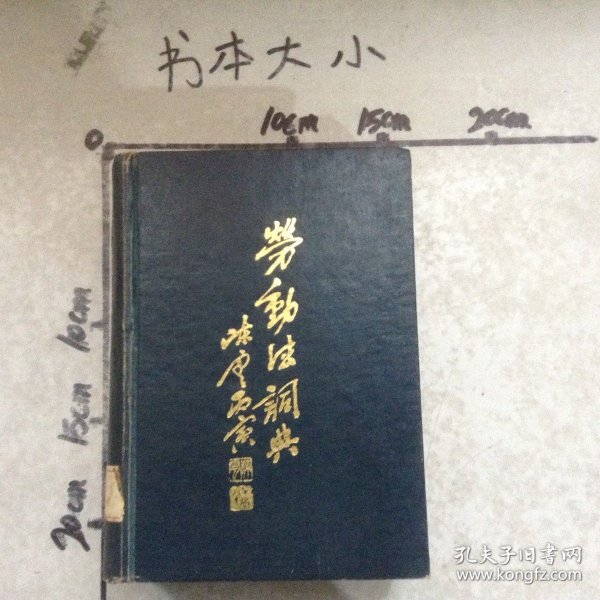 书本大小
0
10cm
15cm
20cm
10cm
15cm
20cm
勞動法詞典
丙寅
孔夫子旧书网
www.kongfz.com